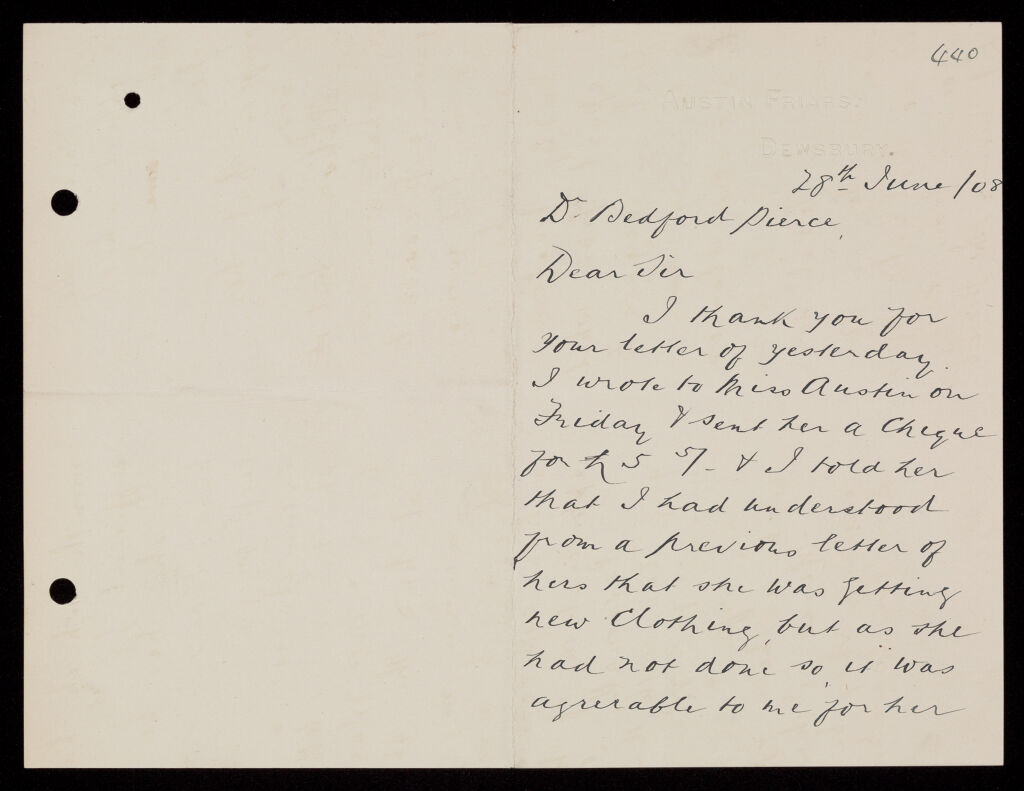 440
AUSTIN FRIARS.
DEWSBURY.
28th June /08
Dr Bedford Pierce,
Dear Sir
I thank you for
your letter of yesterday.
I wrote to Miss Austin on
Friday & sent her a Cheque
for £5 5/- & I told her
that I had understood
from a previous letter of
hers that she was getting
new Clothing, but as she
had not done so, it was
agreeable to me for her